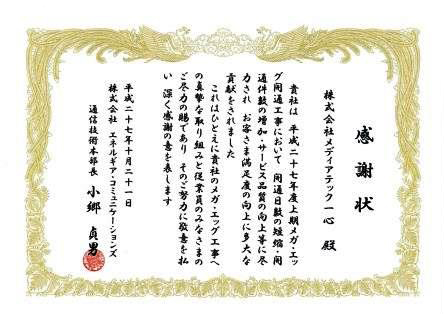 感謝状
株式会社メディアテック一心 殿
貴社は 平成二十七年度上期メガ・エッ
グ開通工事において 開通日数の短縮・開
通件数の増加・サービス品質の向上等に尽
力され お客さま満足度の向上に多大な
貢献をされました
これはひとえに貴社のメガ・エッグ工事へ
の真摯な取り組みと従業員のみなさまの
ご尽力の賜であり そのご努力に敬意を払
い 深く感謝の意を表します
平成二十七年十月二十一日
株式会社 エネルギア・コミュニケーションズ
通信技術本部長 小郷 貞男